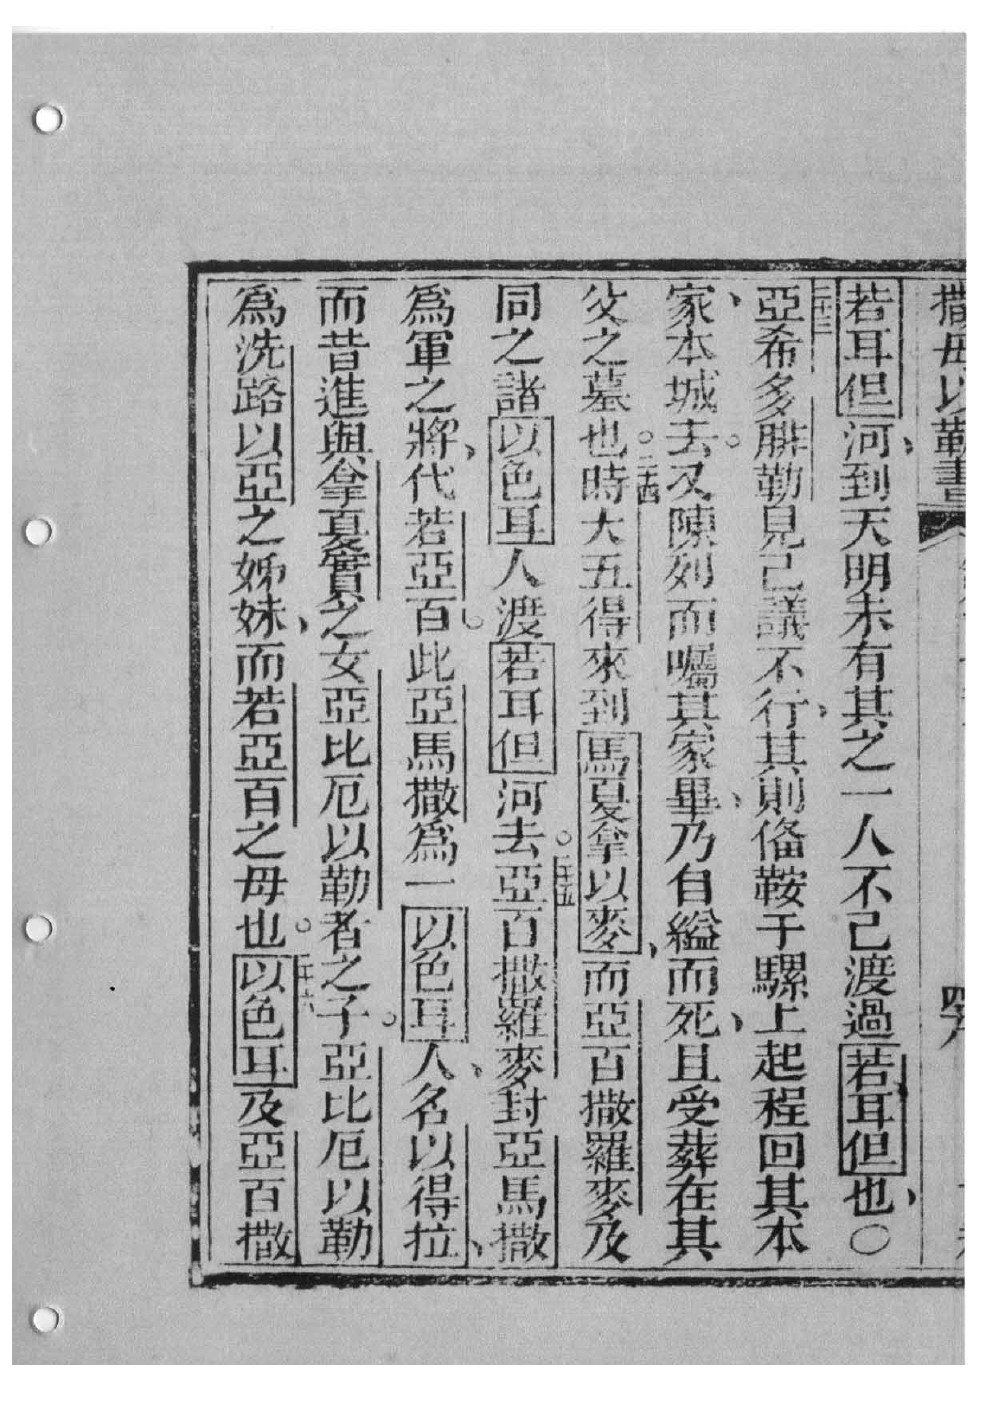 撒母以勒書
四 八
若耳但河到天明未有其之一人不已渡過若耳但也○
二十三亞希多腓勒見己議不行其則俻鞍于騾上起程回其本
家本城去又陳列而囑其家畢乃自縊而死且受葬在其
父之墓也二十四時大五得來到馬夏拿以麥而亞百撒羅麥及
同之諸以色耳人渡若耳但河去二十五亞百撒羅麥封亞馬撒
爲軍之將代若亞百此亞馬撒爲一以色耳人名以得拉
而昔進與拿夏實之女亞比厄以勒者之子亞比厄以勒
爲洗路以亞之姊妹而若亞百之母也二十六以色耳及亞百撒